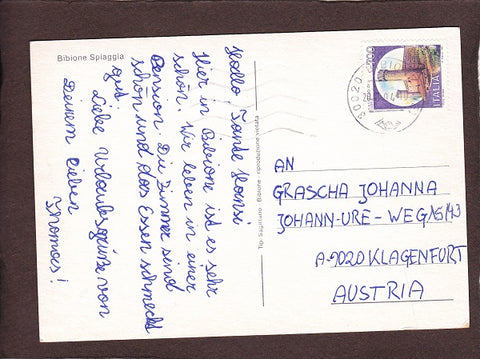 Bibione Spiaggia
Hallo Tante Hansi
Hier in Bibione ist es sehr
schön. Wir leben in einer
Pension. Die Zimmer sind
schön und das Essen schmeckt
gut.
Liebe Urlaubsgrüße von
Deinem lieben
Thomas!
Tip. Sagittario - Bibione - riproduzione vietata
ITALIA
AN
GRASCHA JOHANNA
JOHANN-URE-WEG
A-9020 KLAGENFURT
AUSTRIA